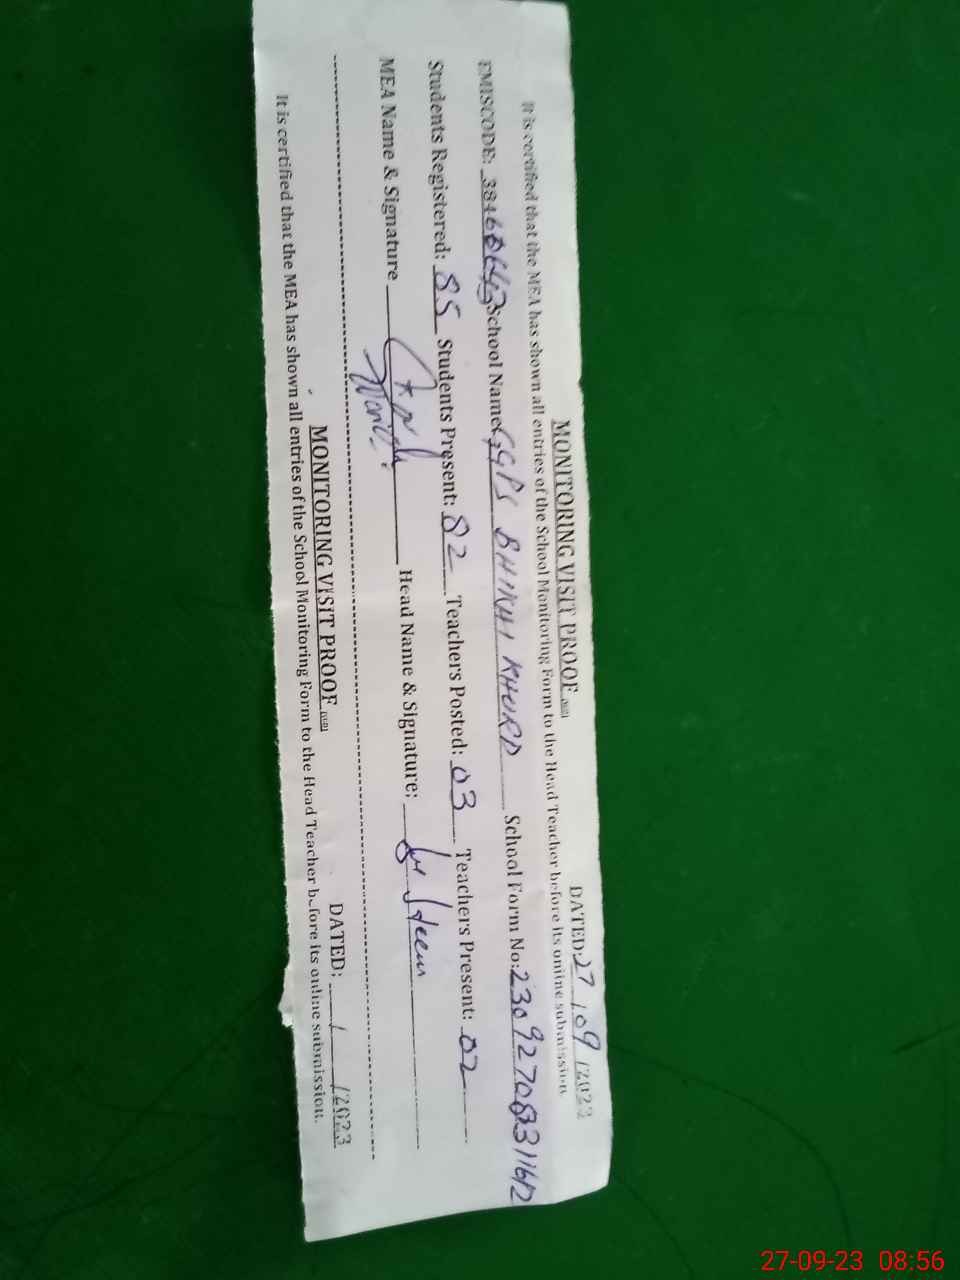 MONITORING VISIT PROOF DATED: 27/09/2023
It is certified that the MEA has shown all entries of the School Monitoring Form to the Head Teacher before its online submission.
EMISCODE: School Name: GGPS BHIKHI KHURD School Form No: 23092708311612
Students Registered: 85 Students Present: 82 Teachers Posted: 03 Teachers Present: 02
MEA Name & Signature Head Name & Signature:
MONITORING VISIT PROOF DATED: / /2023
It is certified that the MEA has shown all entries of the School Monitoring Form to the Head Teacher before its online submission.
27-09-23 08:56